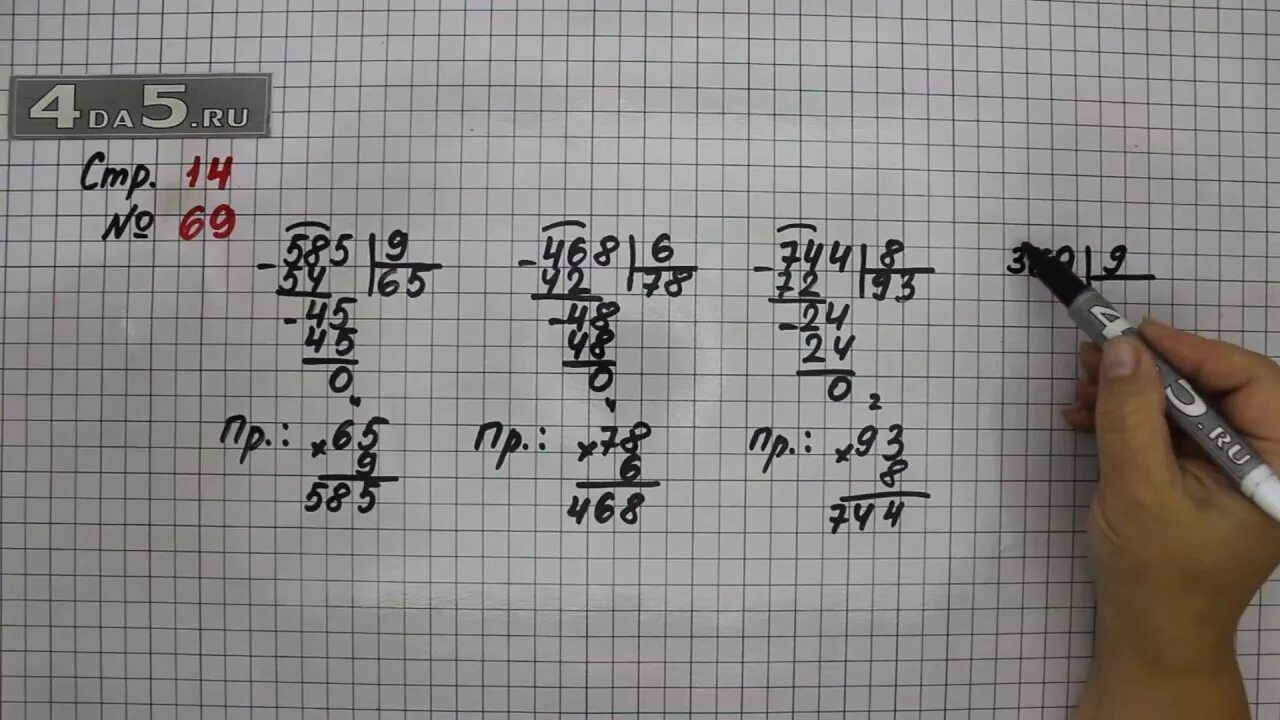 4DA5.RU
Стр. 14
№ 69
- 585 | 9
54 | 65
- 45
45
0
Пр.: 4
× 65
9
585
- 468 | 6
42 | 78
- 48
48
0
Пр.: 4
× 78
6
468
- 744 | 8
72 | 93
- 24
24
0
Пр.: 2
× 93
8
744
9
.RU